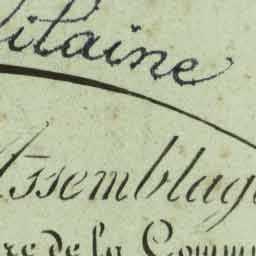 itaine
Assemblag
re de la Comm